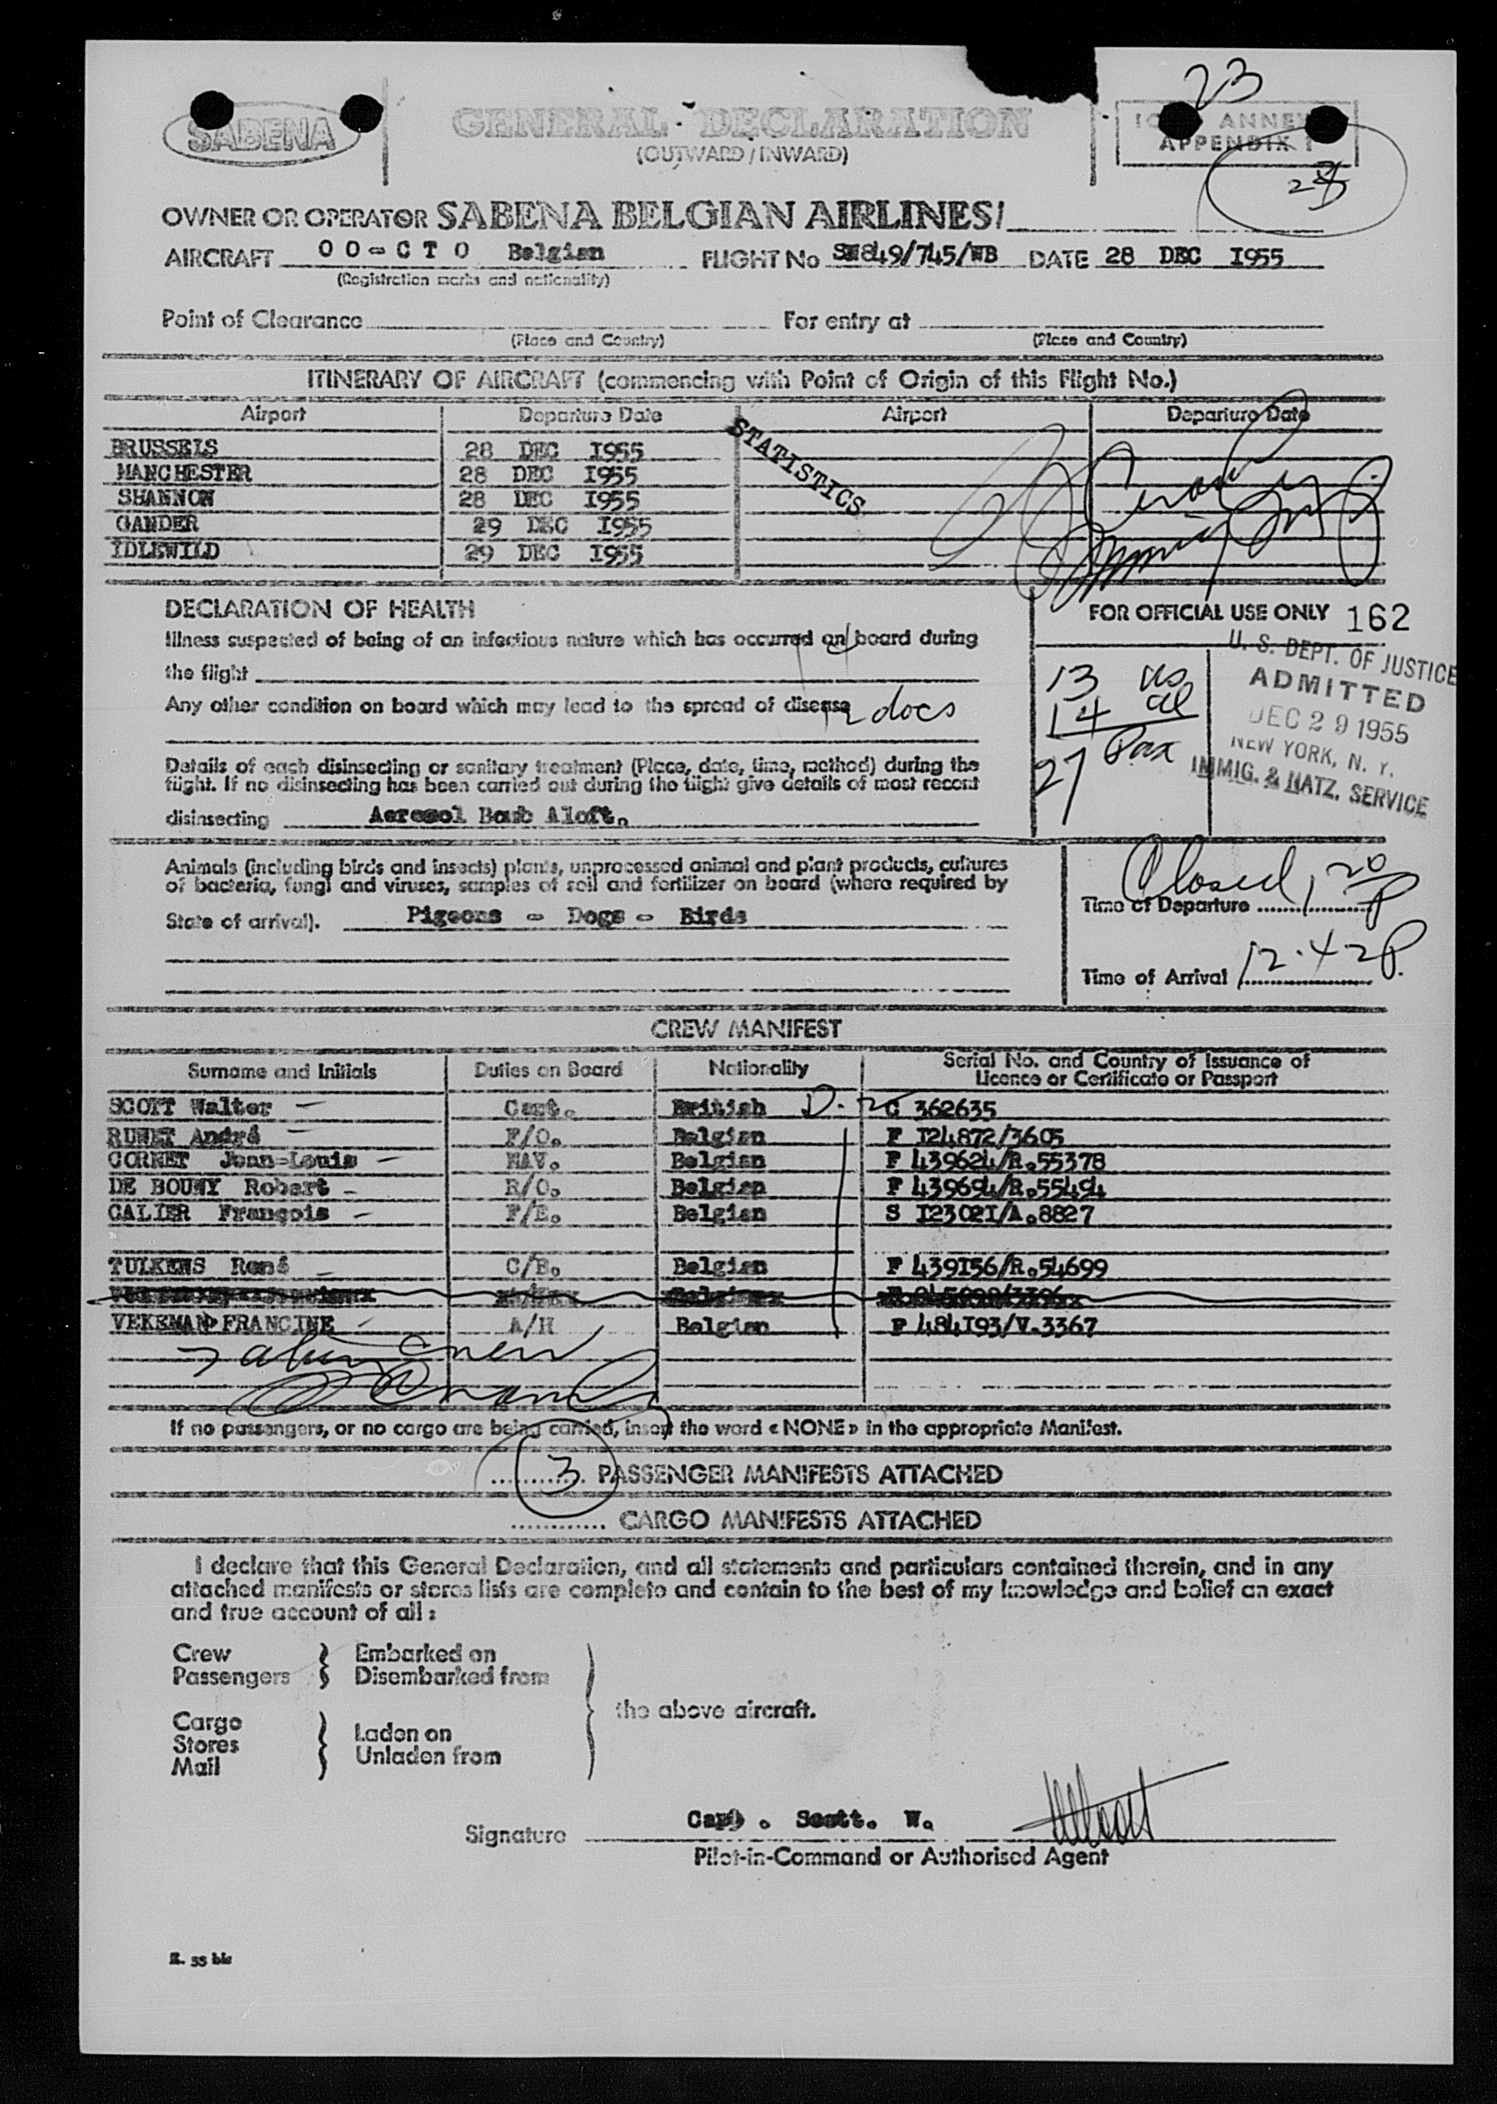 23
SABENA
GENERAL DECLARATION
(OUTWARD / INWARD)
ANNEX
APPENDIX 1
OWNER OR OPERATOR SABENA BELGIAN AIRLINES/
AIRCRAFT OO-CTO Belgian FLIGHT No SN849/745/WB DATE 28 DEC I955
(Registration marks and nationality)
Point of Clearance For entry at
(Place and Country) (Place and Country)
ITINERARY OF AIRCRAFT (commencing with Point of Origin of this Flight No.)
Airport Departure Date Airport Departure Date
BRUSSELS 28 DEC I955
MANCHESTER 28 DEC I955
SHANNON 28 DEC I955
GANDER 29 DEC I955
IDLEWILD 29 DEC I955
STATISTICS
DECLARATION OF HEALTH
FOR OFFICIAL USE ONLY 162
Illness suspected of being of an infectious nature which has occurred on board during
the flight
Any other condition on board which may lead to the spread of disease
docs
Details of each disinsecting or sanitary treatment (Place, date, time, method) during the
flight. If no disinsecting has been carried out during the flight give details of most recent
disinsecting Aerosol Bomb Aloft.
13 us
14 al
27 Pax
U. S. DEPT. OF JUSTICE
ADMITTED
DEC 29 1955
NEW YORK, N. Y.
IMMIG. & NATZ. SERVICE
Animals (including birds and insects) plants, unprocessed animal and plant products, cultures
of bacteria, fungi and viruses, samples of soil and fertilizer on board (where required by
State of arrival). Pigeons - Dogs - Birds
Closed 1 20 P
Time of Departure
Time of Arrival 12.42P.
CREW MANIFEST
Surname and Initials Duties on Board Nationality Serial No. and Country of Issuance of
Licence or Certificate or Passport
SCOTT Walter Capt. British D-2 C 362635
RUNET André F/O. Belgian F I24872/3605
CORNET Jean-Louis NAV. Belgian F 439624/R.55378
DE BOUNY Robert R/O. Belgian F 439694/R.55494
CALIER François F/E. Belgian S I2302I/A.8827
TULKENS René C/B. Belgian F 439I56/R.54699
VEKEMAN FRANCINE A/H Belgian F 484I93/V.3367
Sabena Crew
If no passengers, or no cargo are being carried, insert the word « NONE » in the appropriate Manifest.
3 PASSENGER MANIFESTS ATTACHED
CARGO MANIFESTS ATTACHED
I declare that this General Declaration, and all statements and particulars contained therein, and in any
attached manifests or stores lists are complete and contain to the best of my knowledge and belief an exact
and true account of all :
Crew Embarked on
Passengers Disembarked from
the above aircraft.
Cargo Laden on
Stores Unladen from
Mail
Signature Capt. Scott. W.
Pilot-in-Command or Authorised Agent
R. 55 bis